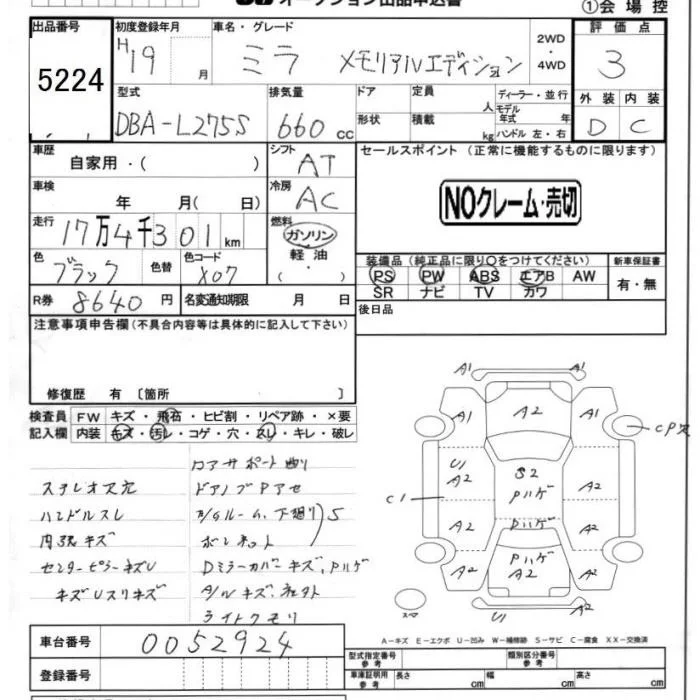 オークション出品申込書
①会場控
出品番号 初度登録年月 車名・グレード 評価点
5224 H19 月 ミラ メモリアルエディション 2WD・4WD 3
型式 排気量 ドア 定員 人 ディーラー・並行 外装 内装
DBA-L275S 660 CC 形状 積載 kg モデル年式 年 ハンドル 左・右 D C
車歴 自家用・( ) シフト AT セールスポイント (正常に機能するものに限ります)
車検 年 月( 日) 冷房 AC NOクレーム・売切
走行 17万4千301 km 燃料 ガソリン 軽油・( )
色 ブラック 色替 色コード X07
装備品(純正品に限り○をつけてください) 新車保証書
PS PW ABS エアB AW 有・無
SR ナビ TV カワ
R券 8640 円 名変通知期限 月 日 後日品
注意事項申告欄(不具合内容等は具体的に記入して下さい)
修復歴 有 〔箇所 〕
検査員記入欄 FW キズ・飛石・ヒビ割・リペア跡・×要
内装 キズ・汚レ・コゲ・穴・スレ・キレ・破レ
ステレオス穴
ハンドルスレ
内張キズ
センターピラーキズU
キズUスリキズ
ロアサポート曲り
ドアノブPアセ
E/Gルーム、下廻り S
ボンネット
DミラーカバーキズPハゲ
A/Wキズ、
ライトクモリ
A1 A1
A1 A2 A1 CPス
U1 A2 S2 Pハゲ A2
C1
A2 Pハゲ A2
A2 Pハゲ A2 A2
スペア U1 A2
A-キズ E-エクボ U-凹み W-補修跡 S-サビ C-腐食 XX-交換済
車台番号 0052924
型式指定番号 参考 類別区分番号 参考
登録番号 車庫証明用 参考 長さ cm 幅 cm 高さ cm